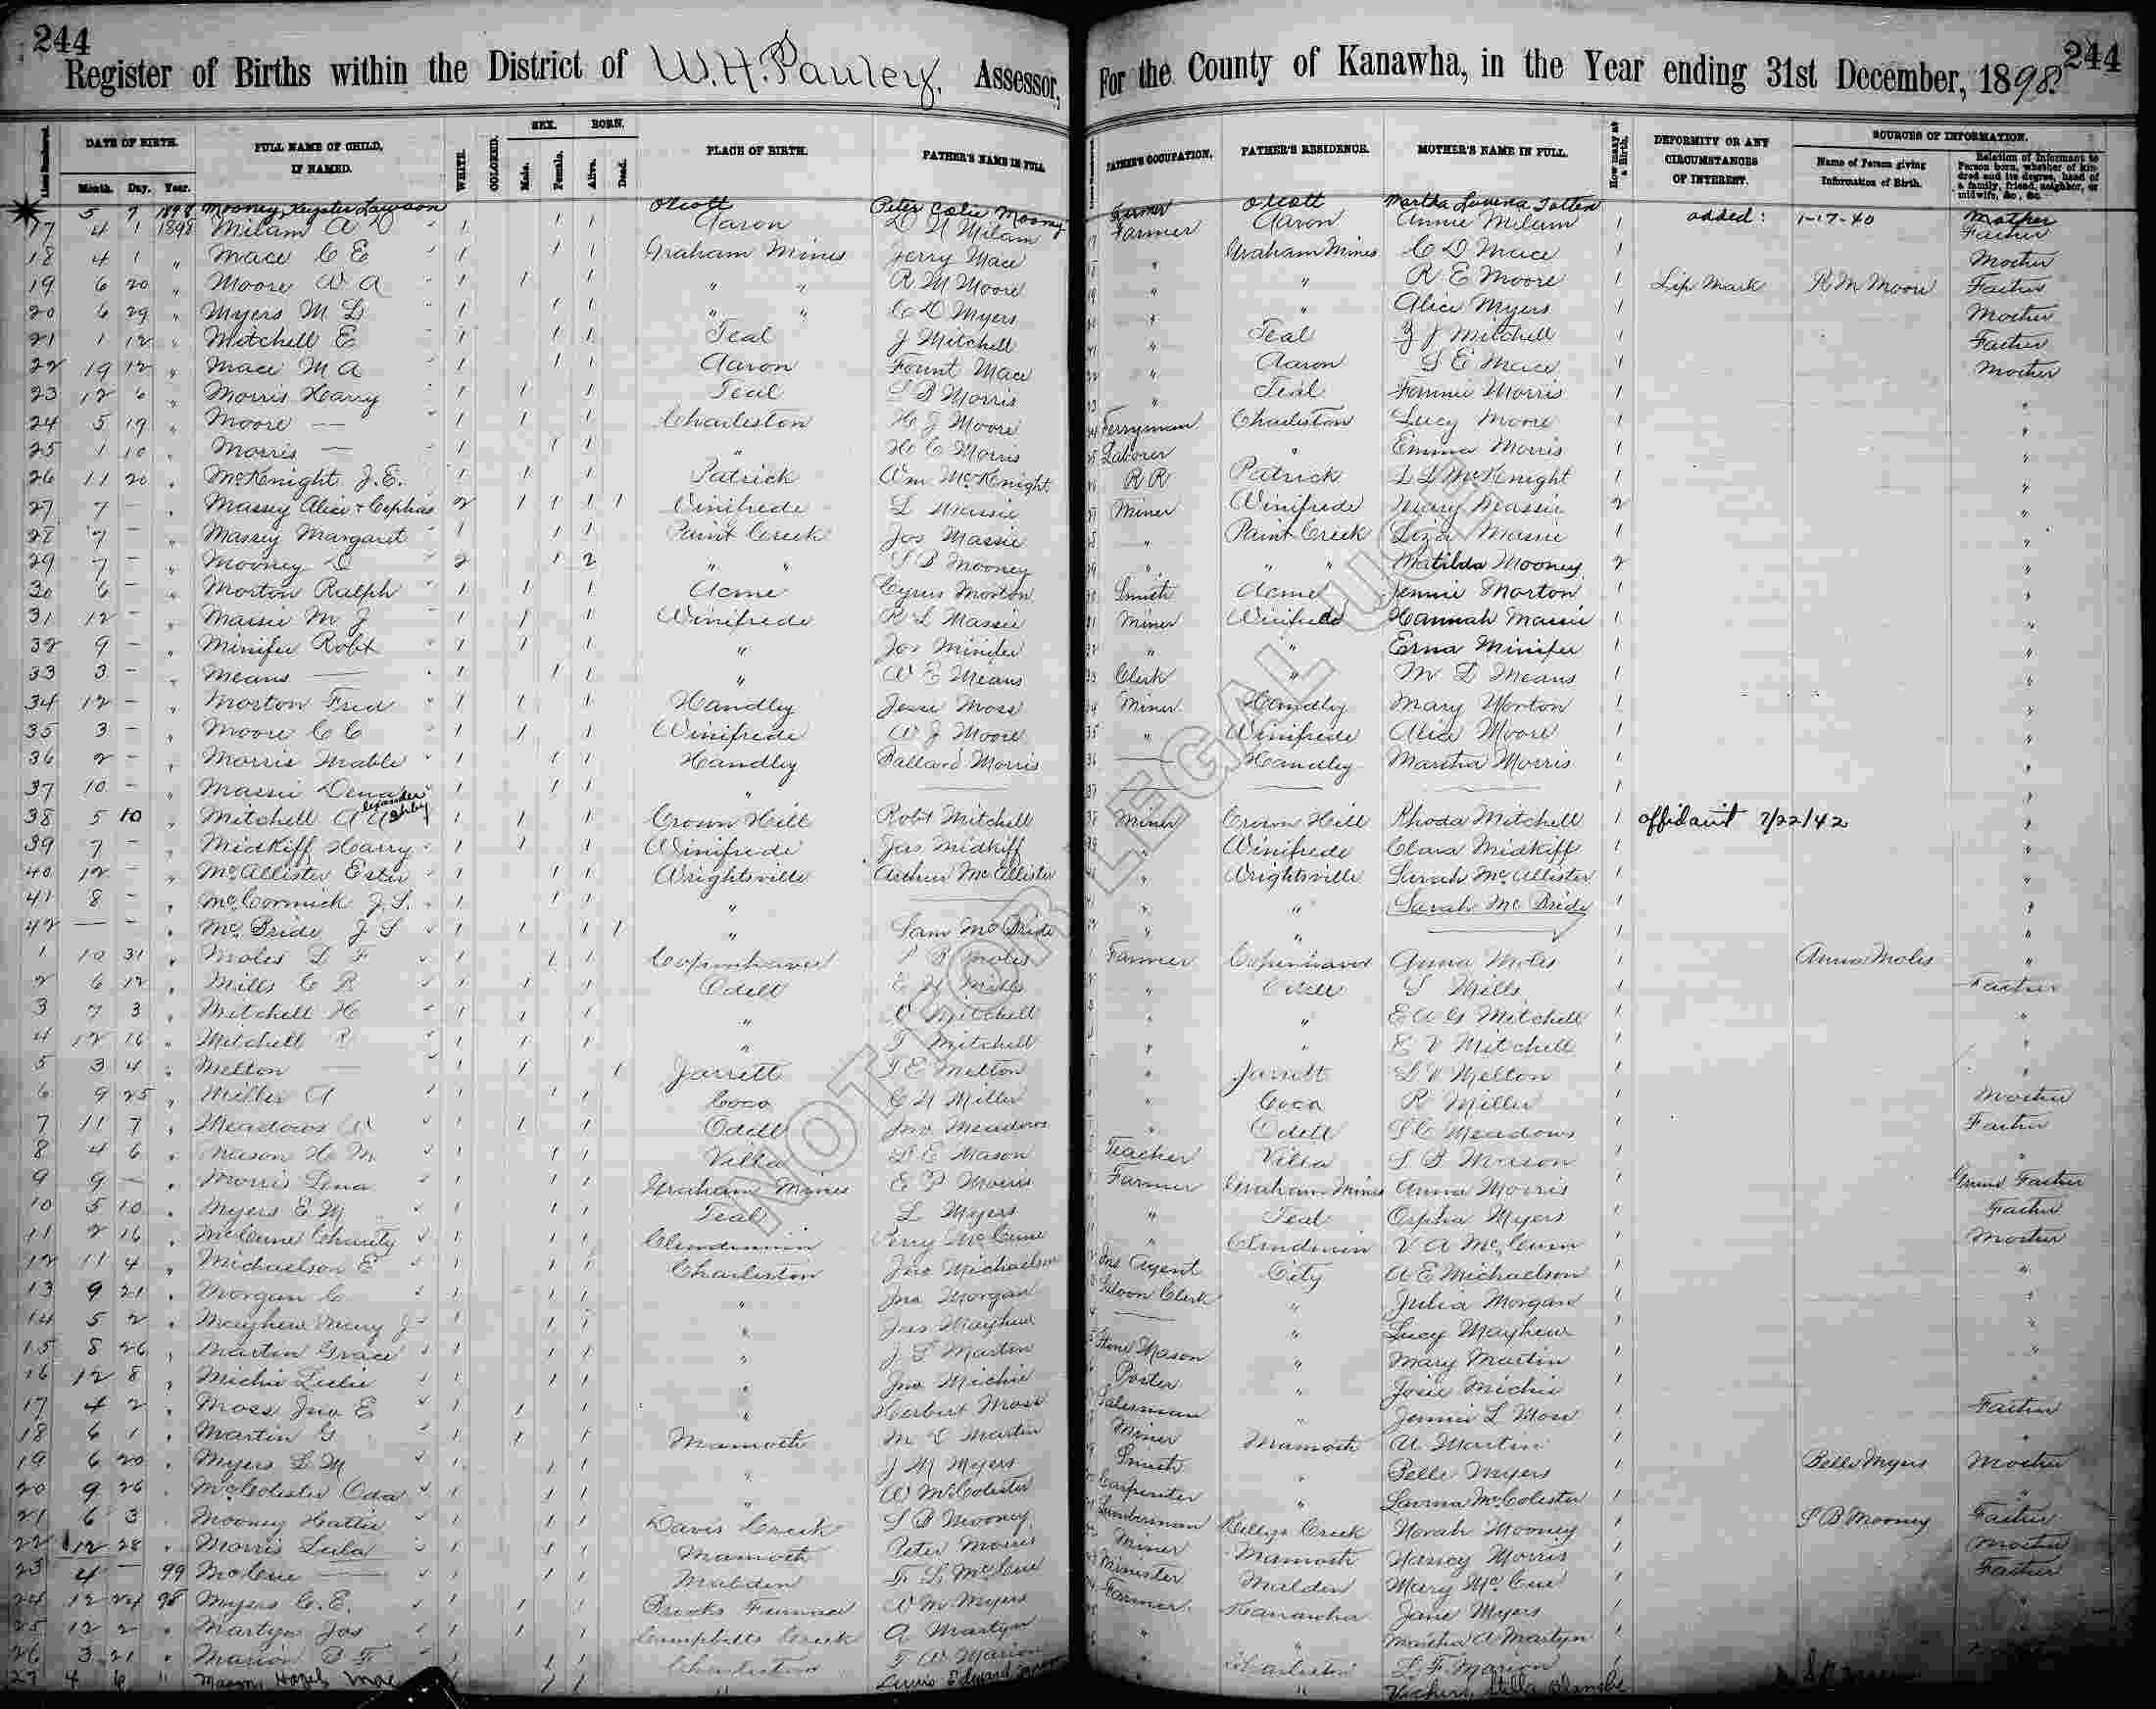 244
244
Register of Births within the District of W. H. Pauley, Assessor, For the County of Kanawha, in the Year ending 31st December, 1898.
DATE OF BIRTH. FULL NAME OF CHILD, IF NAMED. WHITE. COLORED. SEX. BORN. PLACE OF BIRTH. FATHER'S NAME IN FULL FATHER'S OCCUPATION. FATHER'S RESIDENCE. MOTHER'S NAME IN FULL. How many at a Birth. DEFORMITY OR ANY CIRCUMSTANCES OF INTEREST. SOURCES OF INFORMATION.
Month. Day. Year. Male. Female. Alive. Dead. Name of Person giving Information of Birth. Relation of Informant to Person born, whether of kindred and its degree, head of a family, friend, neighbor, or midwife, &c., &c.
5 7 1898 Mooney, Lawson Olcott Peter Mooney Farmer Olcott Martha Totten added: 1-17-40 Mother
17 4 1 1898 Milam A 1 1 1 Aaron Milam Farmer Aaron Annie Milam 1 Father
18 4 1 " Mace C E 1 1 1 Graham Mines Jerry Mace " Graham Mines C D Mace 1 Mother
19 6 20 " Moore W A 1 1 1 " " R M Moore " " R E Moore 1 Lip Mark R M Moore Father
20 6 29 " Myers M L 1 1 1 " " C D Myers " " Alice Myers 1 Mother
21 1 12 " Mitchell E 1 1 1 Teal J Mitchell " Teal J Mitchell 1 Father
22 19 12 " Mace M A 1 1 1 Aaron Fount Mace " Aaron S E Mace 1 Mother
23 12 6 " Morris Harry 1 1 1 Teal S B Morris " Teal Fannie Morris 1 "
24 5 19 " Moore — 1 1 1 Charleston H J Moore Ferryman Charleston Lucy Moore 1 "
25 1 10 " Morris — 1 1 1 " H C Morris Laborer " Emma Morris 1 "
26 11 20 " McKnight J. E. 1 1 1 Patrick Wm McKnight R R Patrick L L McKnight 1 "
27 7 — " Massey Alice & Cephas 2 1 1 1 1 Winifrede L Massie Miner Winifrede Mary Massie 2 "
28 7 — " Massey Margaret 1 1 1 Paint Creek Jos Massie " Paint Creek Liza Massie 1 "
29 7 — " Mooney D 2 1 2 " " S B Mooney " " " Matilda Mooney 2 "
30 6 — " Morton Ralph 1 1 1 Acme Cyrus Morton Smith Acme Jennie Morton 1 "
31 12 — " Massie M J 1 1 1 Winifrede R L Massie Miner Winifrede Hannah Massie 1 "
32 9 — " Minifee Robt 1 1 1 " Jos Minifee " " Erna Minifee 1 "
33 3 — " Means — 1 1 1 " W E Means Clerk " M D Means 1 "
34 12 — " Morton Fred 1 1 1 Handley Jesse Moss Miner Handley Mary Morton 1 "
35 3 — " Moore C C 1 1 1 Winifrede W J Moore " Winifrede Alice Moore 1 "
36 2 — " Morris Mable 1 1 1 Handley Ballard Morris — Handley Martha Morris 1 "
37 10 — " Massie Dena 1 1 1 " — — 1 "
38 5 10 " Mitchell Alexander Ashby 1 1 1 Crown Hill Robt Mitchell Miner Crown Hill Rhoda Mitchell 1 affidavit 7/22/42 "
39 7 — " Midkiff Harry 1 1 1 Winifrede Jas Midkiff " Winifrede Clara Midkiff 1 "
40 12 — " McAllister Ester 1 1 1 Wrightsville Arthur McAllister " Wrightsville Sarah McAllister 1 "
41 8 — " McCormick J. S. 1 1 1 " — " " Sarah McBride 1 "
42 — — " McBride J S 1 1 1 1 " Sam McBride " " — 1 "
1 10 31 " Moles L F 1 1 1 Copenhaver Moles Farmer Copenhaver Anna Moles 1 Anna Moles "
2 6 12 " Mills C R 1 1 1 Odell Mills " Odell S Mills 1 Father
3 7 3 " Mitchell H 1 1 1 " Mitchell " " E A G Mitchell 1 "
4 12 16 " Mitchell R 1 1 1 " Mitchell " " E V Mitchell 1 "
5 3 4 " Melton — 1 1 1 Jarrett Melton " Jarrett L V Melton 1 "
6 9 25 " Miller A 1 1 1 Coco C H Miller " Coco R Miller 1 Mother
7 11 7 " Meadows W 1 1 1 Odell Jno Meadows " Odell S C Meadows 1 Father
8 4 6 " Mason H M 1 1 1 Villa Mason Teacher Villa S B Mason 1 "
9 9 — " Morris Lena 1 1 1 Graham Mines E P Morris Farmer Graham Mines Anna Morris 1 Grand Father
10 5 10 " Myers E M 1 1 1 Teal L Myers " Teal Orpha Myers 1 Father
11 2 16 " McCune Charity 1 1 1 Clendennin Perry McCune " Clendenin V A McCune 1 Mother
12 11 4 " Michaelson E 1 1 1 Charleston Jno Michaelson Ins Agent City A E Michaelson 1 "
13 9 21 " Morgan C 1 1 1 " Jno Morgan Saloon Clerk " Julia Morgan 1 "
14 5 2 " Mayhew Mary J 1 1 1 " Jas Mayhew — " Lucy Mayhew 1 "
15 8 26 " Martin Grace 1 1 1 " J. S Martin Stone Mason " Mary Martin 1 "
16 12 8 " Michie Lulu 1 1 1 " Jno Michie Porter " Josie Michie 1 "
17 4 2 " Moss Jno E 1 1 1 " Herbert Moss Salesman " Jennie L Moss 1 Father
18 6 1 " Martin G 1 1 1 Mamoth Martin Miner Mamoth A Martin 1 "
19 6 20 " Myers L M 1 1 1 " J M Myers Smith " Belle Myers 1 Belle Myers Mother
20 9 26 " McColester Oda 1 1 1 " W McColester Carpenter " McColester 1 "
21 6 3 " Mooney Hattie 1 1 1 Davis Creek S B Mooney Lumberman Kellys Creek Norah Mooney 1 S B Mooney Father
22 12 28 " Morris Lula 1 1 1 Mamoth Peter Morris Miner Mamoth Nancy Morris 1 Mother
23 4 — 99 McCue — 1 1 1 Malden McCue Minister Malden Mary McCue 1 Father
24 12 24 98 Myers C. E. 1 1 1 Brooks Furnace W M Myers Farmer Kanawha Jane Myers 1
25 12 2 " Martyn Jos 1 1 1 Campbells Creek A Martyn " " Martha A Martyn 1
26 3 21 " Marion 1 1 1 Charleston Marion " Charleston L. F. Marion 1
27 4 6 " Mason, Hazel Mae 1 1 Lewis Edward " Vickers, Stella Blanche
NOT FOR LEGAL USE